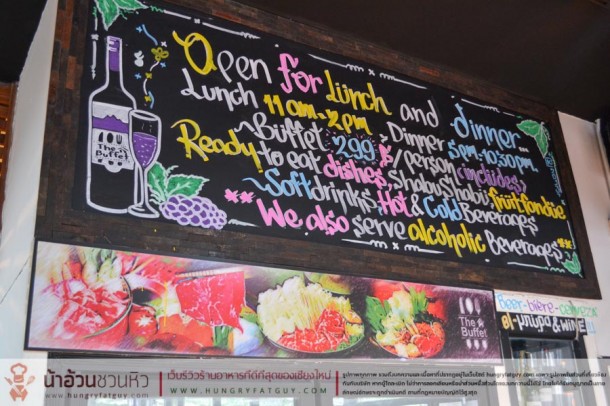 Open for Lunch and dinner...
Lunch 11 am-2 pm Dinner 5pm-10:30pm.
Buffet 299 ฿/person (includes)
Ready to eat dishes, Shabu Shabu, fruit fondue
Soft drinks, Hot & Cold Beverages
** We also serve alcoholic Beverages **
The Buffet
The Buffet
Beer-bière-cerveza
& WINE
น้าอ้วนชวนหิว
www.hungryfatguy.com
เว็บรีวิวร้านอาหารที่ดีที่สุดของเชียงใหม่
WWW.HUNGRYFATGUY.COM